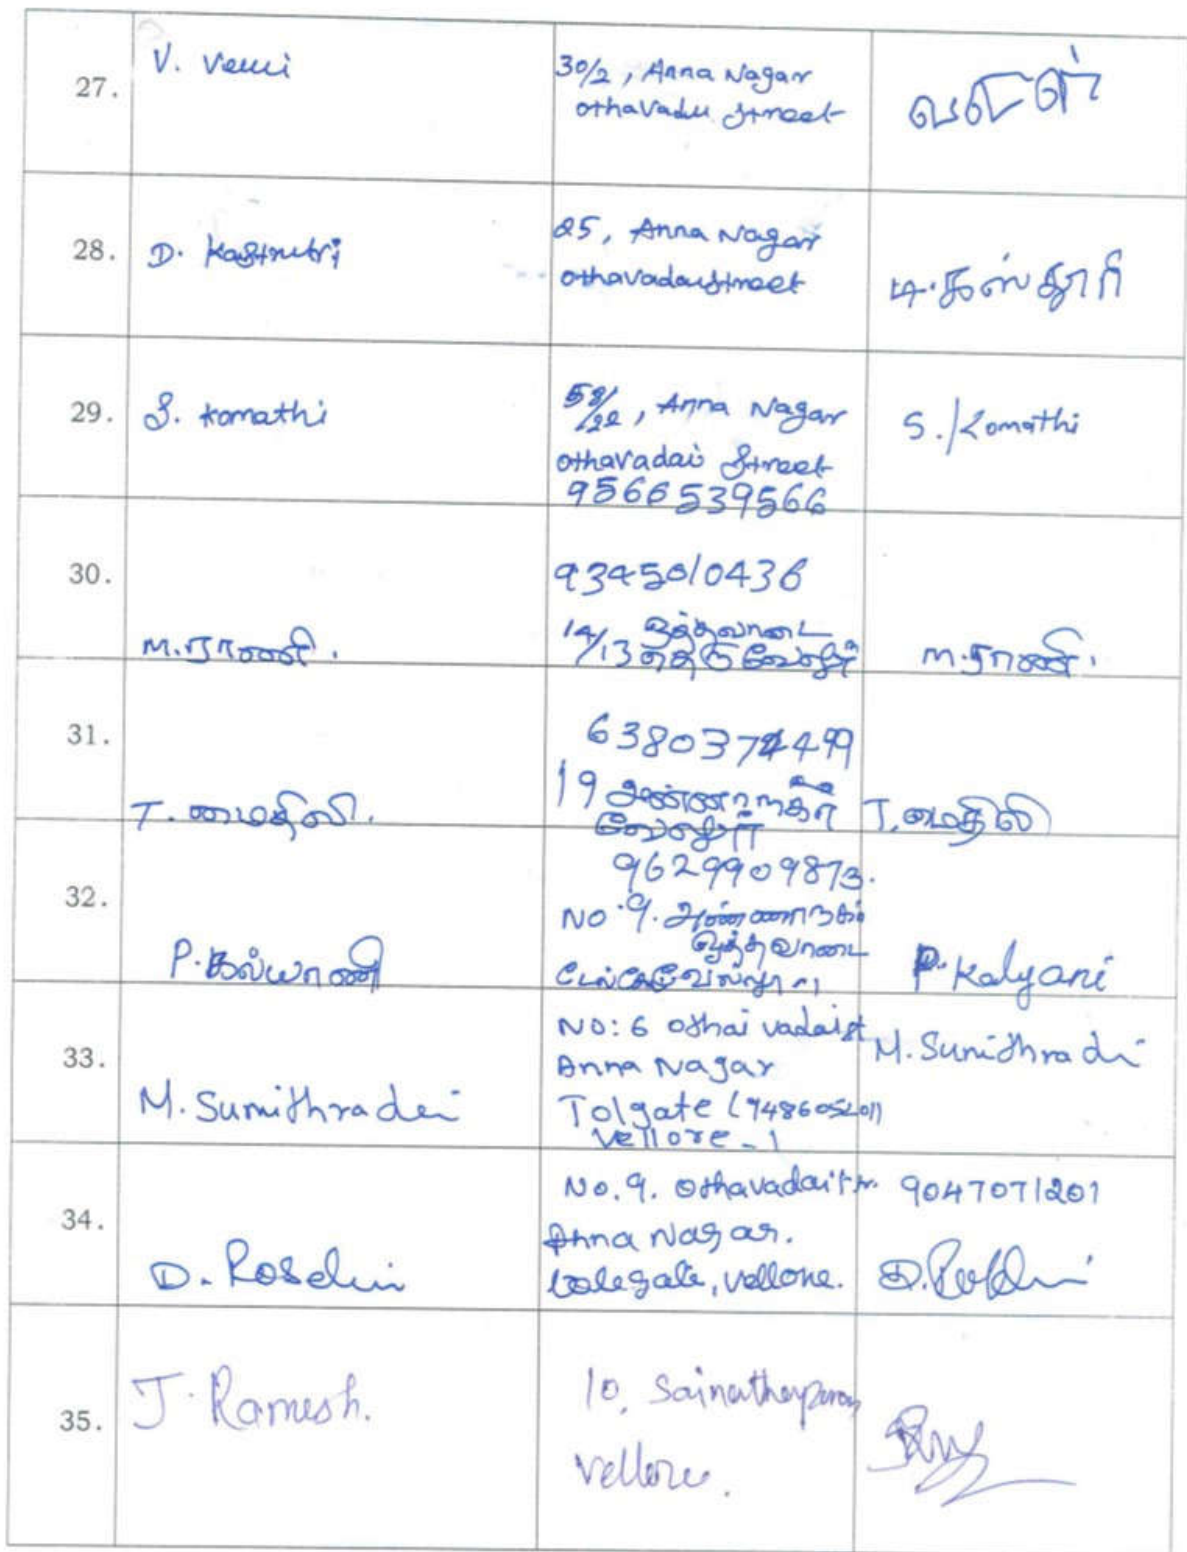 27.
V. Valli
30/2, Anna Nagar
othavadu street
28.
D. Kasthuri
25, Anna Nagar
othavadai street
டி.கஸ்தூரி
29.
S. Komathi
58/22, Anna Nagar
othavadai Street
9566539566
S. Komathi
30.
M.ராணி.
9345010436
ஒத்தவாடை
14/13 தெரு வேலூர்
M.ராணி.
31.
T. மைதிலி.
19 அண்ணாநகர்
வேலூர்
T. மைதிலி
32.
P.கல்யாணி
9629909873.
NO.9. அண்ணாநகர்
ஒத்தவாடை
P. Kalyani
33.
M. Sumithradei
NO: 6 othai vadai st
Anna Nagar
Tolgate (9486052011
Vellore - 1
M. Sumithradei
34.
D. Roselin
No. 9. othavadai str.
Anna Nagar.
tolegate, vellore.
9047071201
35.
J. Ramesh.
10, Sainathapuram
Vellore.